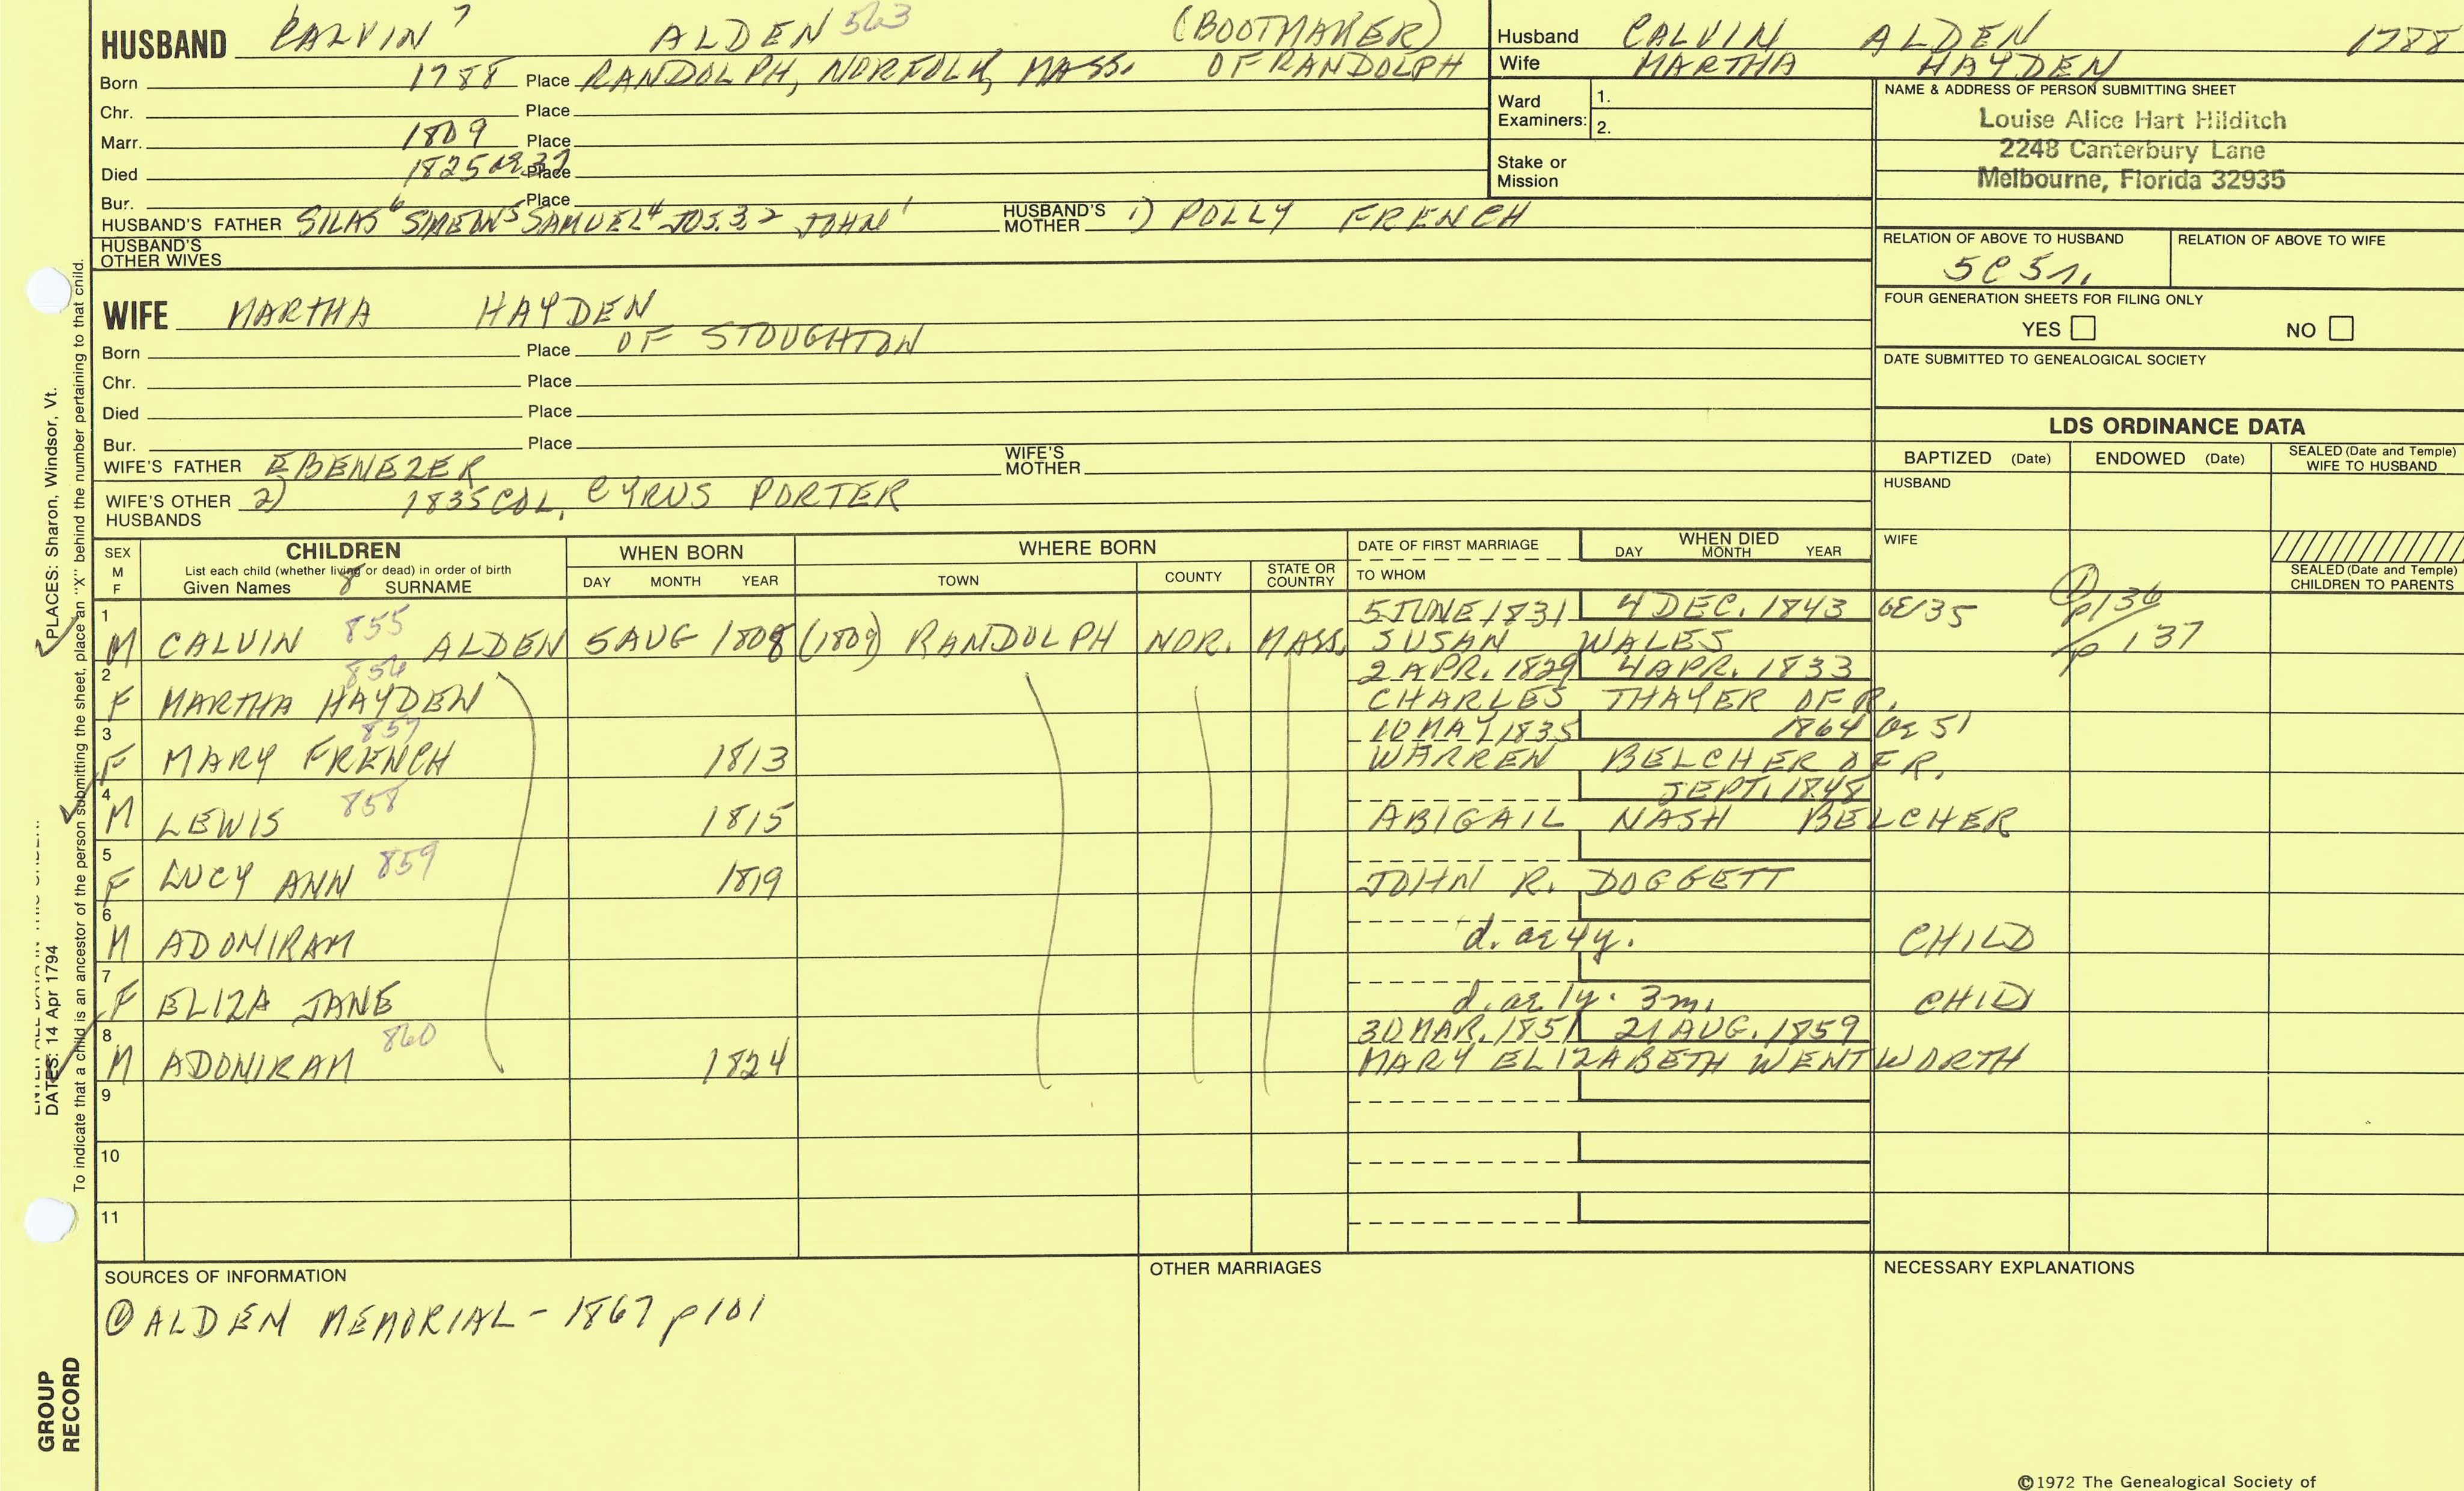 HUSBAND CALVIN 7 ALDEN 563 (BOOTMAKER)
Born 1788 Place RANDOLPH, NORFOLK, MASS. OF RANDOLPH
Chr. Place
Marr. 1809 Place
Died 1825 AE 37 Place
Bur. Place
HUSBAND'S FATHER SILAS 6 SIMEON 5 SAMUEL 4 JOS. 3, 2 JOHN 1 HUSBAND'S MOTHER 1) POLLY FRENCH
HUSBAND'S OTHER WIVES
WIFE MARTHA HAYDEN
Born Place OF STOUGHTON
Chr. Place
Died Place
Bur. Place
WIFE'S FATHER EBENEZER WIFE'S MOTHER
WIFE'S OTHER HUSBANDS 2) 1835 COL. CYRUS PORTER
Husband CALVIN ALDEN 1788
Wife MARTHA HAYDEN
Ward Examiners: 1.
2.
Stake or Mission
NAME & ADDRESS OF PERSON SUBMITTING SHEET
Louise Alice Hart Hilditch
2248 Canterbury Lane
Melbourne, Florida 32935
RELATION OF ABOVE TO HUSBAND RELATION OF ABOVE TO WIFE
5C5r.
FOUR GENERATION SHEETS FOR FILING ONLY
YES NO
DATE SUBMITTED TO GENEALOGICAL SOCIETY
LDS ORDINANCE DATA
BAPTIZED (Date) ENDOWED (Date) SEALED (Date and Temple) WIFE TO HUSBAND
HUSBAND
WIFE
SEALED (Date and Temple) CHILDREN TO PARENTS
SEX M F CHILDREN WHEN BORN WHERE BORN DATE OF FIRST MARRIAGE WHEN DIED
List each child (whether living or dead) in order of birth DAY MONTH YEAR
Given Names 8 SURNAME DAY MONTH YEAR TOWN COUNTY STATE OR COUNTRY TO WHOM
1 855 5 JUNE 1831 4 DEC. 1843 AE 35 1 p136
M CALVIN ALDEN 5 AUG 1808 (1809) RANDOLPH NOR. MASS. SUSAN WALES p 137
2 856 2 APR. 1829 4 APR. 1833
F MARTHA HAYDEN CHARLES THAYER OF R.
3 857 10 MAY 1835 1864 AE 51
F MARY FRENCH 1813 WARREN BELCHER OF R.
4 858 SEPT. 1848
M LEWIS 1815 ABIGAIL NASH BELCHER
5 859
F LUCY ANN 1819 JOHN R. DOGGETT
6
M ADONIRAM d. ae 4y. CHILD
7
F ELIZA JANE d. ae 1y. 3m. CHILD
8 860 30 MAR. 1851 21 AUG. 1859
M ADONIRAM 1824 MARY ELIZABETH WENTWORTH
9
10
11
SOURCES OF INFORMATION OTHER MARRIAGES NECESSARY EXPLANATIONS
1 ALDEN MEMORIAL - 1867 p101
©1972 The Genealogical Society of
PLACES: Sharon, Windsor, Vt.
DATES: 14 Apr 1794
To indicate that a child is an ancestor of the person submitting the sheet, place an "X" behind the number pertaining to that child.
GROUP RECORD